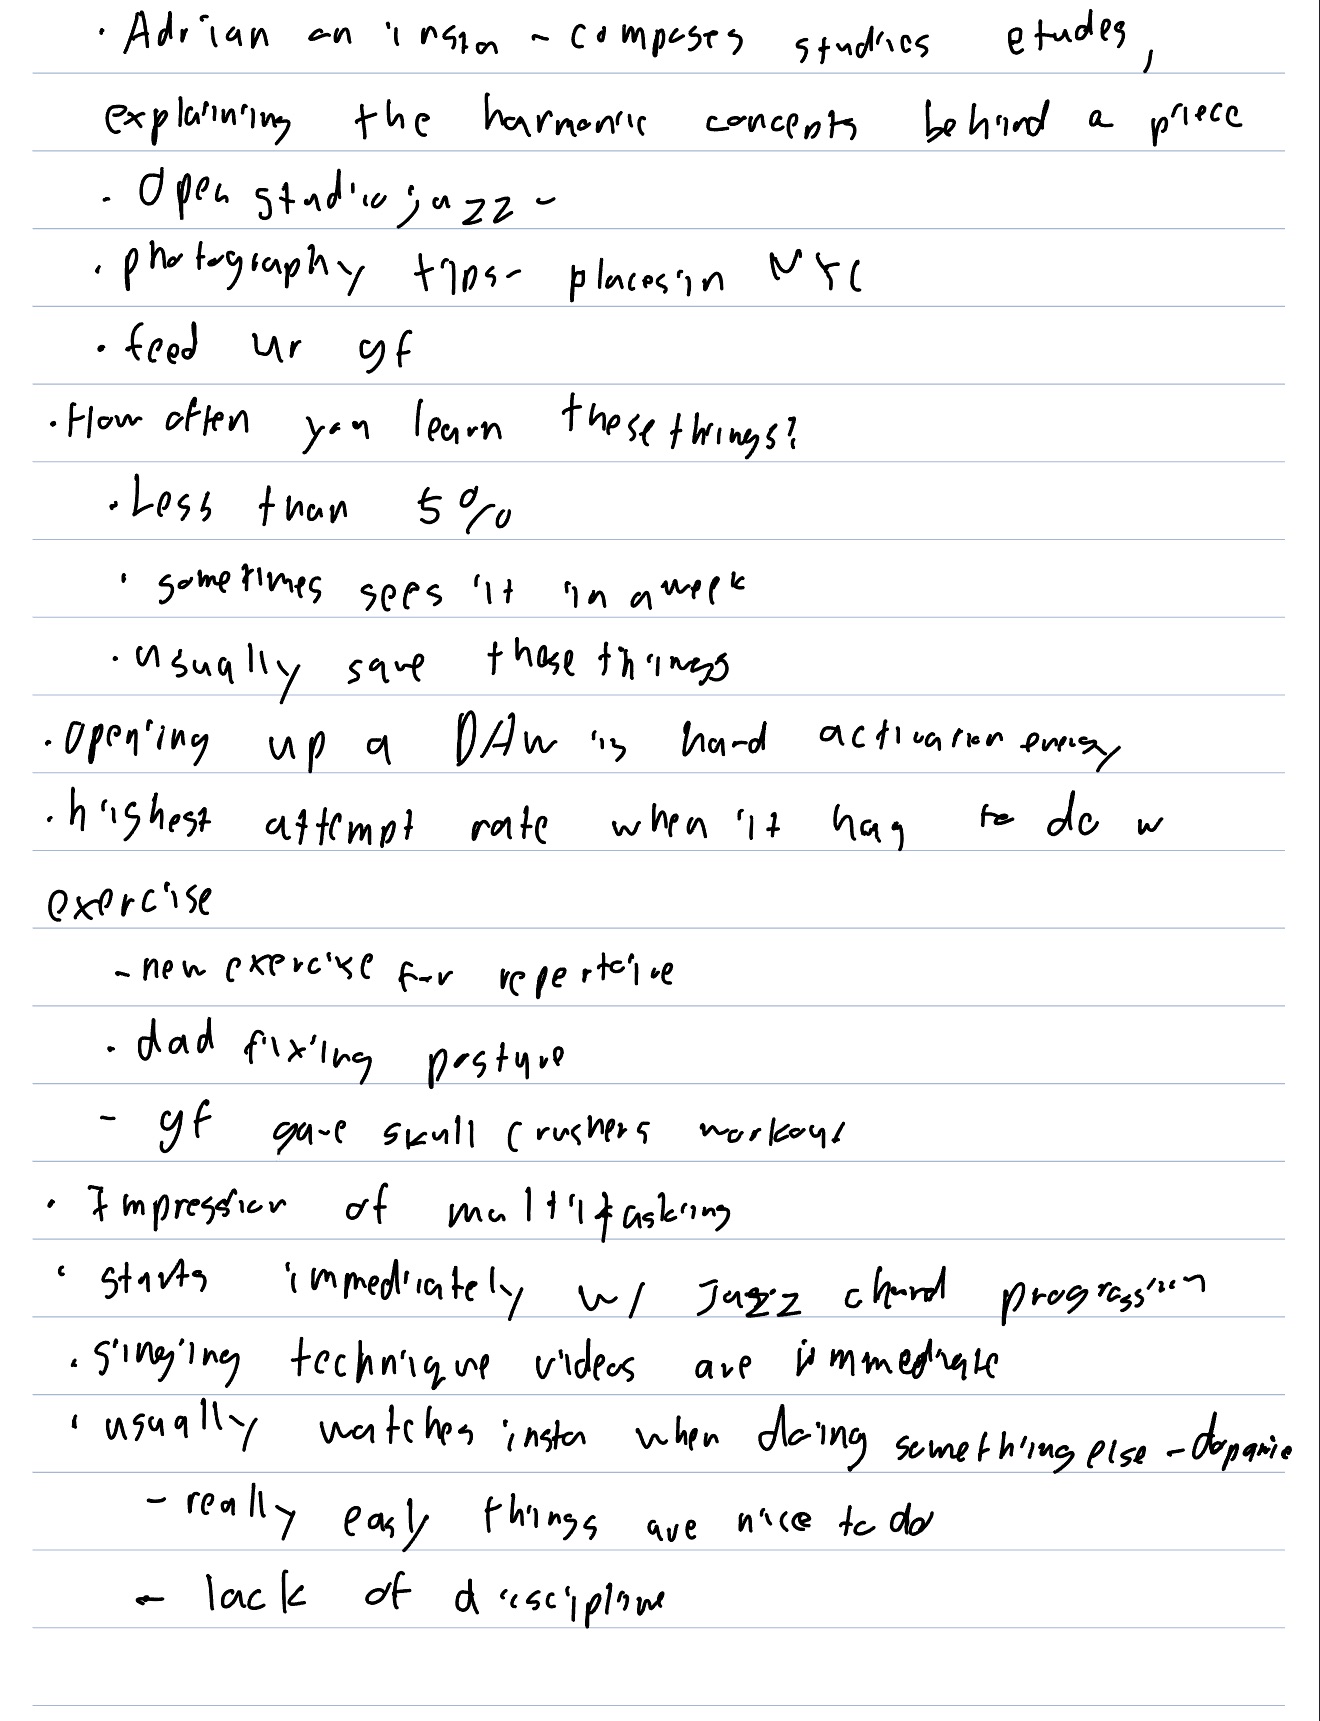 · Adrian on insta - composes studies etudes,
explaining the harmonic concepts behind a piece
· Open studio jazz -
· photography tips - places in NYC
· feed ur gf
· How often you learn these things?
· Less than 5%
· sometimes sees it in a week
· usually save those things
· opening up a DAW is hard activation energy
· highest attempt rate when it has to do w
exercise
- new exercise for repertoire
· dad fixing posture
- gf gave skull crushers workout
· Impression of multitasking
· starts immediately w/ Jazz chord progression
· singing technique videos are immediate
· usually watches insta when doing something else - dopamie
- really easy things are nice to do
- lack of discipline